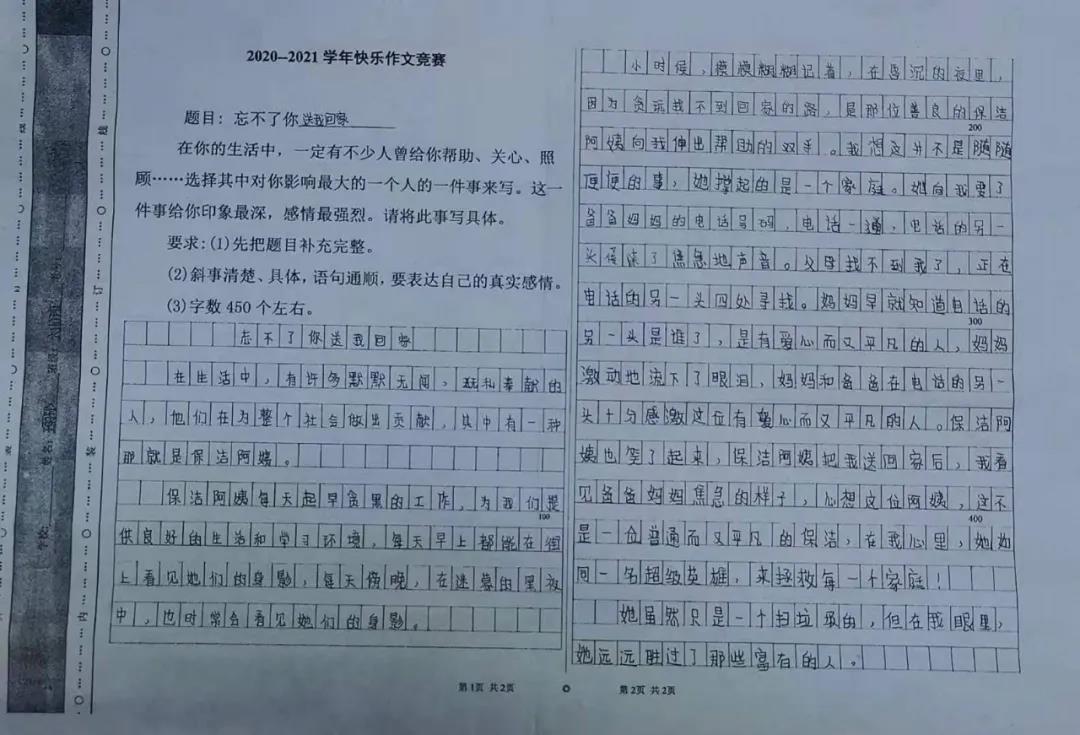 2020—2021 学年快乐作文竞赛
题目：忘不了你送我回家
在你的生活中，一定有不少人曾给你帮助、关心、照
顾……选择其中对你影响最大的一个人的一件事来写。这一
件事给你印象最深，感情最强烈。请将此事写具体。
要求：(1)先把题目补充完整。
(2)斜事清楚、具体，语句通顺，要表达自己的真实感情。
(3)字数 450 个左右。
忘不了你送我回家
在生活中，有许多默默无闻，无私奉献的
人，他们在为整个社会做出贡献，其中有一种
那就是保洁阿姨。
保洁阿姨每天起早贪黑的工作，为我们是
100
供良好的生活和学习环境，每天早上都能在街
上看见她们的身影，每天傍晚，在迷幕的黑夜
中，也时常会看见她们的身影。
第1页 共2页
小时候，模模糊糊记着，在昏沉的夜里，
因为贪玩找不到回家的路，是那位善良的保洁
200
阿姨向我伸出帮助的双手。我想这并不是随随
便便的事，她撑起的是一个家庭。她向我要了
爸爸妈妈的电话号码，电话一通，电话的另一
头传来了焦急地声音。父母找不到我了，正在
电话的另一头四处寻找。妈妈早就知道电话的
300
另一头是谁了，是有爱心而又平凡的人，妈妈
激动地流下了眼泪，妈妈和爸爸在电话的另一
头十分感激这位有爱心而又平凡的人。保洁阿
姨也笑了起来，保洁阿姨把我送回家后，我看
见爸爸妈妈焦急的样子，心想这位阿姨，这不
400
是一位普通而又平凡的保洁，在我心里，她如
同一名超级英雄，来拯救每一个家庭！
她虽然只是一个扫垃圾的，但在我眼里，
她远远胜过了那些富有的人。
第2页 共2页
学校:
姓名:
班级:
装
订
线
内